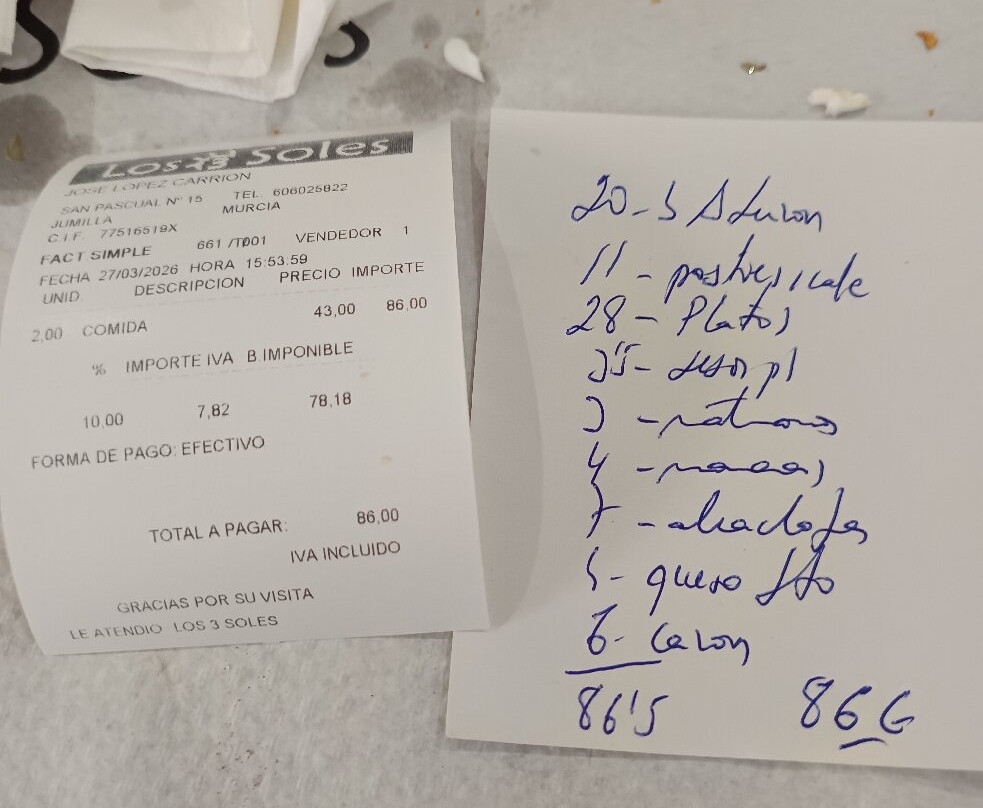 Los 3 Soles
JOSE LOPEZ CARRION
SAN PASCUAL Nº 15 TEL. 606025822
JUMILLA MURCIA
C.I.F. 77516519X
FACT.SIMPLE 661 /T001 VENDEDOR 1
FECHA 27/03/2026 HORA 15:53:59
UNID. DESCRIPCION PRECIO IMPORTE
2,00 COMIDA 43,00 86,00
% IMPORTE IVA B.IMPONIBLE
10,00 7,82 78,18
FORMA DE PAGO: EFECTIVO
TOTAL A PAGAR: 86,00
IVA INCLUIDO
GRACIAS POR SU VISITA
LE ATENDIO LOS 3 SOLES
20-
11 - postres
28 - Platos
3'5-
3 -
4 -
7 -
5- queso fto
6-
86'5 86 €